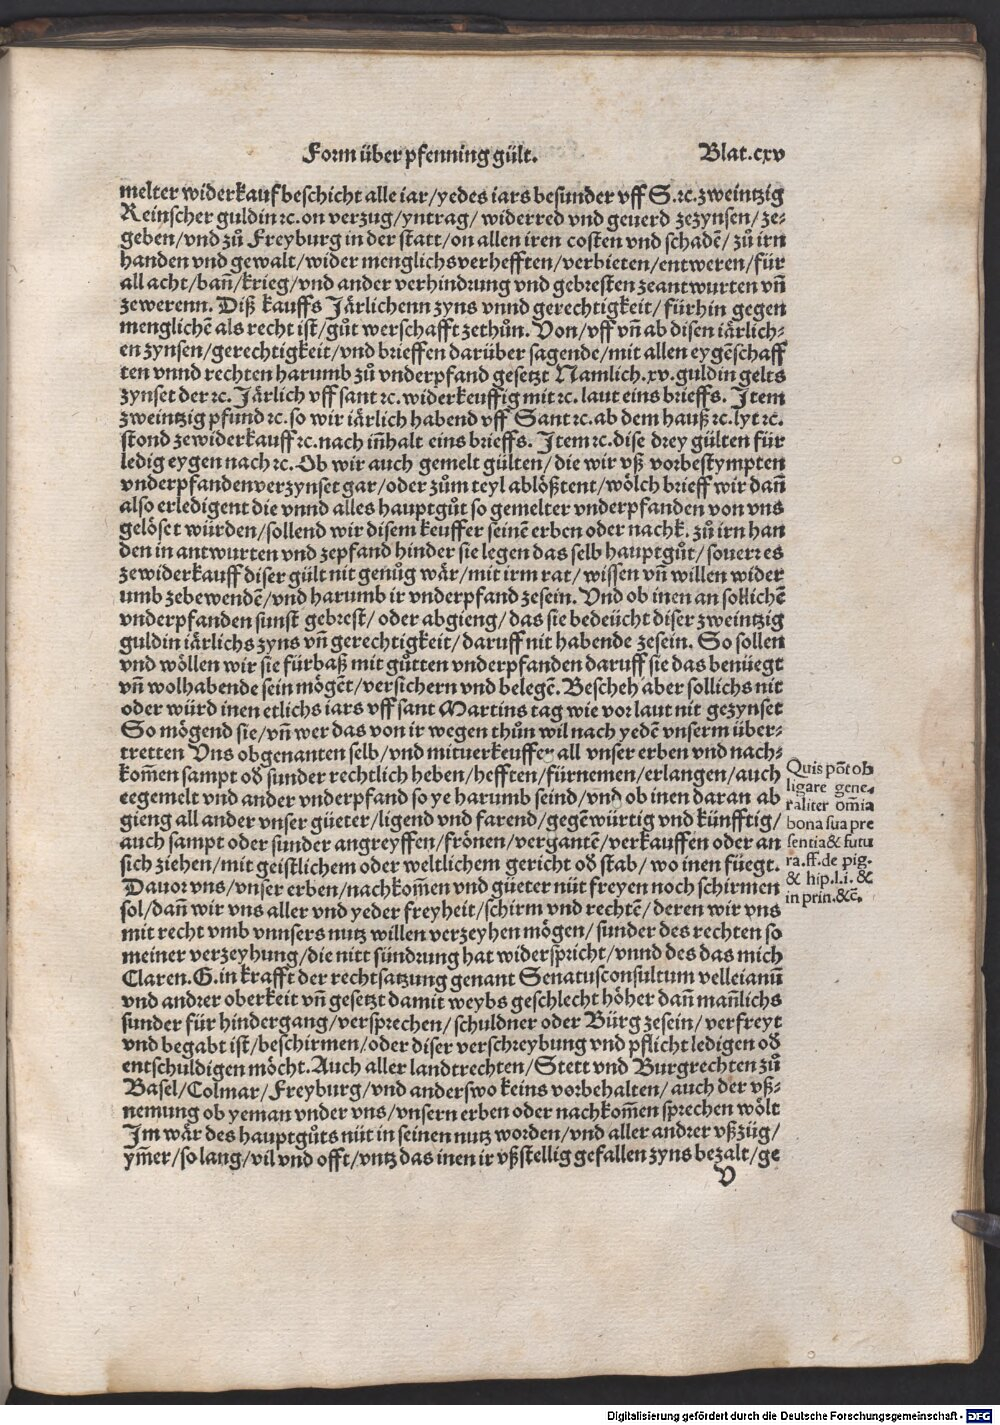 Form über pfenning gült. Blat.cxv
melter widerkauf beschicht alle iar/yedes iars besunder vff S.ꝛc.zweintzig
Reinscher guldin ꝛc.on verzug/yntrag/ widerred vnd geuerd zezynsen/ze⸗
geben/vnd zů Freyburg in der statt/on allen iren costen vnd schadē/ zů irn
handen vnd gewalt/wider menglichs verhefften/verbieten/entweren/für
all acht/bañ/krieg/vnd ander verhindrung vnd gebresten zeantwurten vñ
zewerenn. Diß kauffs Järlichenn zyns vnnd gerechtigkeit/ fürhin gegen
menglichē als recht ist/gůt werschafft zethůn. Von/vff vñ ab disen iärlich⸗
en zynsen/gerechtigkeit/vnd brieffen darüber sagende/mit allen eygēschaff
ten vnnd rechten harumb zů vnderpfand gesetzt Namlich.xv.guldin gelts
zynset der ꝛc. Järlich vff sant ꝛc.widerkeuffig mit ꝛc.laut eins brieffs. Item
zweintzig pfund ꝛc.so wir iärlich habend vff Sant ꝛc.ab dem hauß ꝛc.lyt ꝛc.
stond zewiderkauff ꝛc.nach iñhalt eins brieffs. Item ꝛc.dise drey gülten für
ledig eygen nach ꝛc.Ob wir auch gemelt gülten/ die wir vß vorbestympten
vnderpfanden verzynset gar/oder zům teyl ablößtent/wölch brieff wir dañ
also erledigent die vnnd alles hauptgůt so gemelter vnderpfanden von vns
gelöset würden/sollend wir disem keuffer seinē erben oder nachk. zů irn han
den in antwurten vnd zepfand hinder sie legen das selb hauptgůt/souerꝛ es
zewiderkauff diser gült nit genůg wär/mit irm rat/wissen vñ willen wider
umb zebewendē/vnd harumb ir vnderpfand zesein. Vnd ob inen an sollichē
vnderpfanden sunst gebrest/ oder abgieng/das sie bedeücht diser zweintzig
guldin iärlichs zyns vñ gerechtigkeit/daruff nit habende zesein. So sollen
vnd wöllen wir sie fürbaß mit gůtten vnderpfanden daruff sie das benüegt
vñ wolhabende sein mögēt/versichern vnd belegē. Bescheh aber sollichs nit
oder würd inen etlichs iars vff sant Martins tag wie vor laut nit gezynset
So mögend sie/vñ wer das von ir wegen thůn wil nach yedē vnserm über⸗
tretten Vns obgenanten selb/vnd mituerkeuffer all vnser erben vnd nach⸗
kom̃en sampt oď sunder rechtlich heben/hefften/fürnemen/erlangen/auch
eegemelt vnd ander vnderpfand so ye harumb seind/vnd ob inen daran ab
gieng all ander vnser güeter/ligend vnd farend/gegēwürtig vnd künfftig/
auch sampt oder sunder angreyffen/frönen/vergantē/verkauffen oder an
sich ziehen/mit geistlichem oder weltlichem gericht oď stab/ wo inen füegt.
Dauor vns/vnser erben/nachkom̃en vnd güeter nüt freyen noch schirmen
sol/dañ wir vns aller vnd yeder freyheit/schirm vnd rechtē/deren wir vns
mit recht vmb vnnsers nutz willen verzeyhen mögen/ sunder des rechten so
meiner verzeyhung/die nitt sündrung hat widerspricht/vnnd des das mich
Claren.G.in krafft der rechtsatzung genant Senatusconsultum velleianū
vnd andrer oberkeit vñ gesetzt damit weybs geschlecht höher dañ mañlichs
sunder für hindergang/versprechen/schuldner oder Bürg zesein/verfreyt
vnd begabt ist/beschirmen/oder diser verschreybung vnd pflicht ledigen oď
entschuldigen möcht.Auch aller landtrechten/Stett vnd Burgrechten zů
Basel/Colmar/Freyburg/vnd anderswo keins vorbehalten/auch der vß⸗
nemung ob yeman vnder vns/vnsern erben oder nachkom̃en sprechen wölt
Im wär des hauptgůts nüt in seinen nutz worden/vnd aller andrer vßzüg/
ym̃er/so lang/vil vnd offt/vntz das inen ir vßstellig gefallen zyns bezalt/ge
V
Quis pōt ob
ligare gene⸗
raliter om̄ia
bona sua pre
sentia & futu
ra.ff.de pig.
& hip.l.i. &
in prin.&c̄.
Digitalisierung gefördert durch die Deutsche Forschungsgemeinschaft - DFG